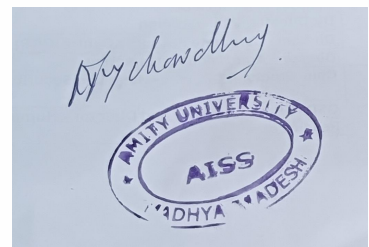 AMITY UNIVERSITY
AISS
MADHYA PRADESH